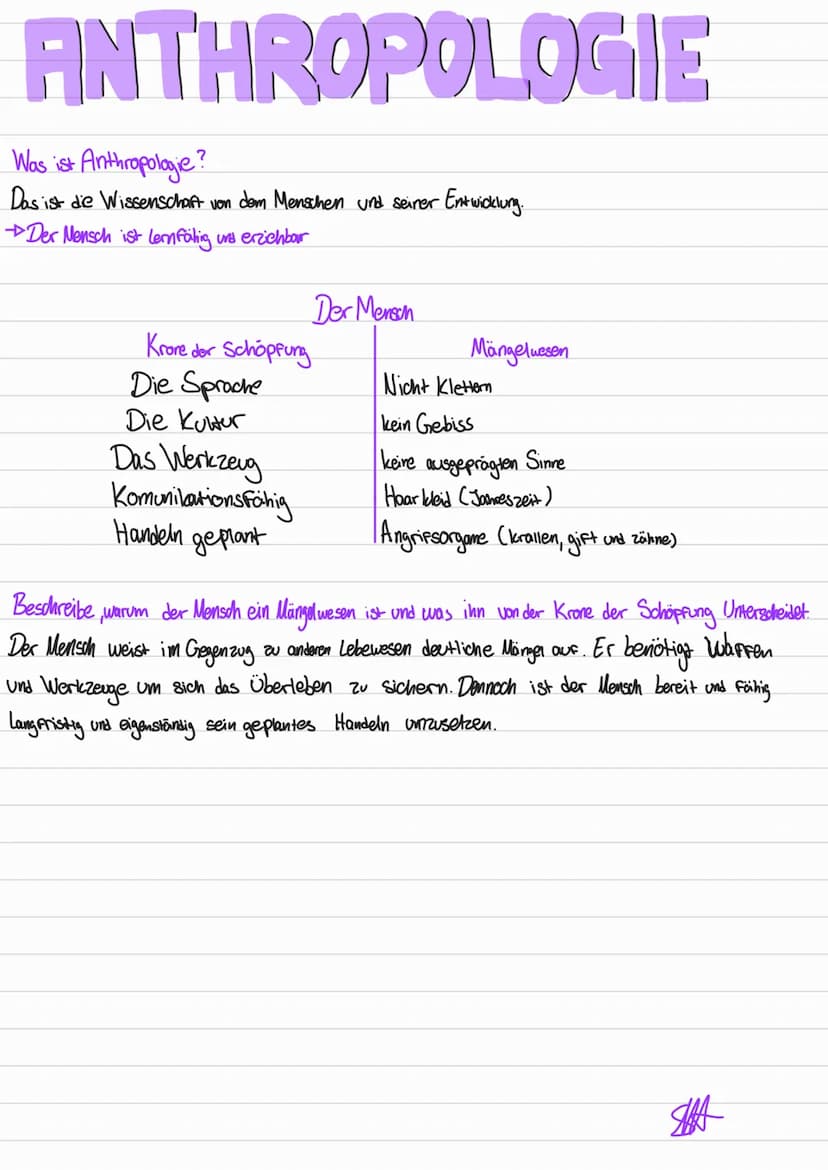 ANTHROPOLOGIE
Was ist Anthropologie?
Das ist die Wissenschaft von dem Menschen und seiner Entwicklung.
→Der Mensch ist lernfähig und erziehbar
Der Mensch
Krone der Schöpfung
Die Sprache
Die Kultur
Das Werkzeug
Komunikationsfähig
Handeln geplant
Mängelwesen
Nicht Klettern
kein Gebiss
keine ausgeprägten Sinne
Haarkleid (Jahreszeit)
Angrifsorgane (krallen, gift und zähne)
Beschreibe, warum der Mensch ein Mängelwesen ist und was ihn von der Krone der Schöpfung Unterscheidet.
Der Mensch weist im Gegenzug zu anderen Lebewesen deutliche Mängel auf. Er benötigt Waffen
und Werkzeuge um sich das Überleben zu sichern. Dennoch ist der Mensch bereit und fähig
langfristig und eigenständig sein geplantes Handeln umzusetzen.